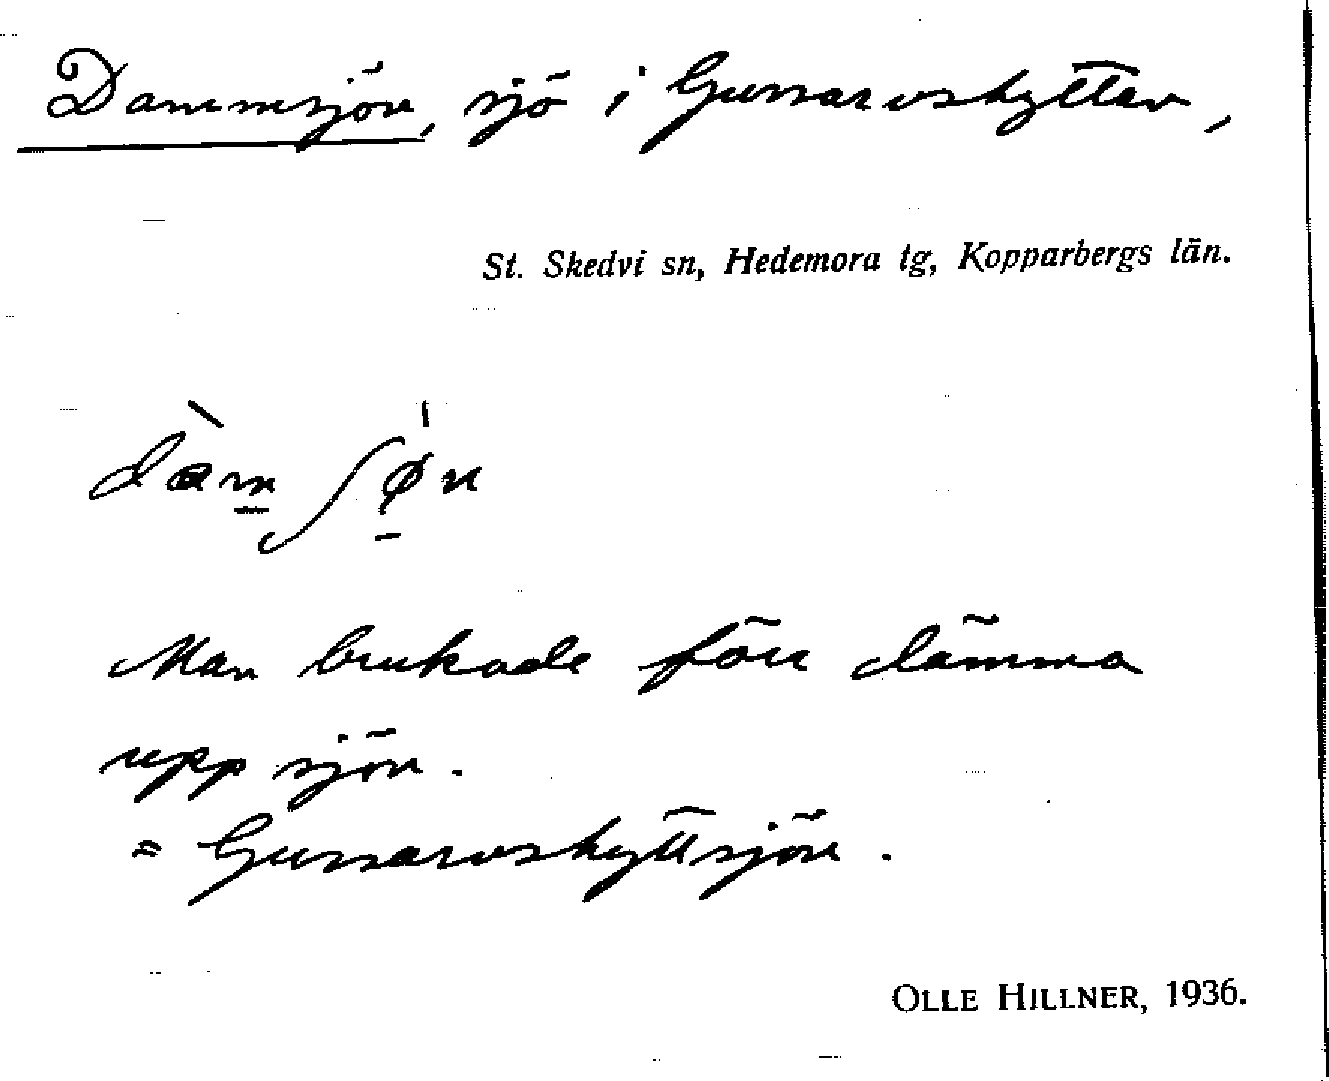 Dammsjön, sjö i Gussarvshyttan,
St. Skedvi sn, Hedemora tg, Kopparbergs län.
dam ʃøn
Man brukade förr dämma
upp sjön.
= Gussarvshyttsjön.
OLLE HILLNER, 1936.